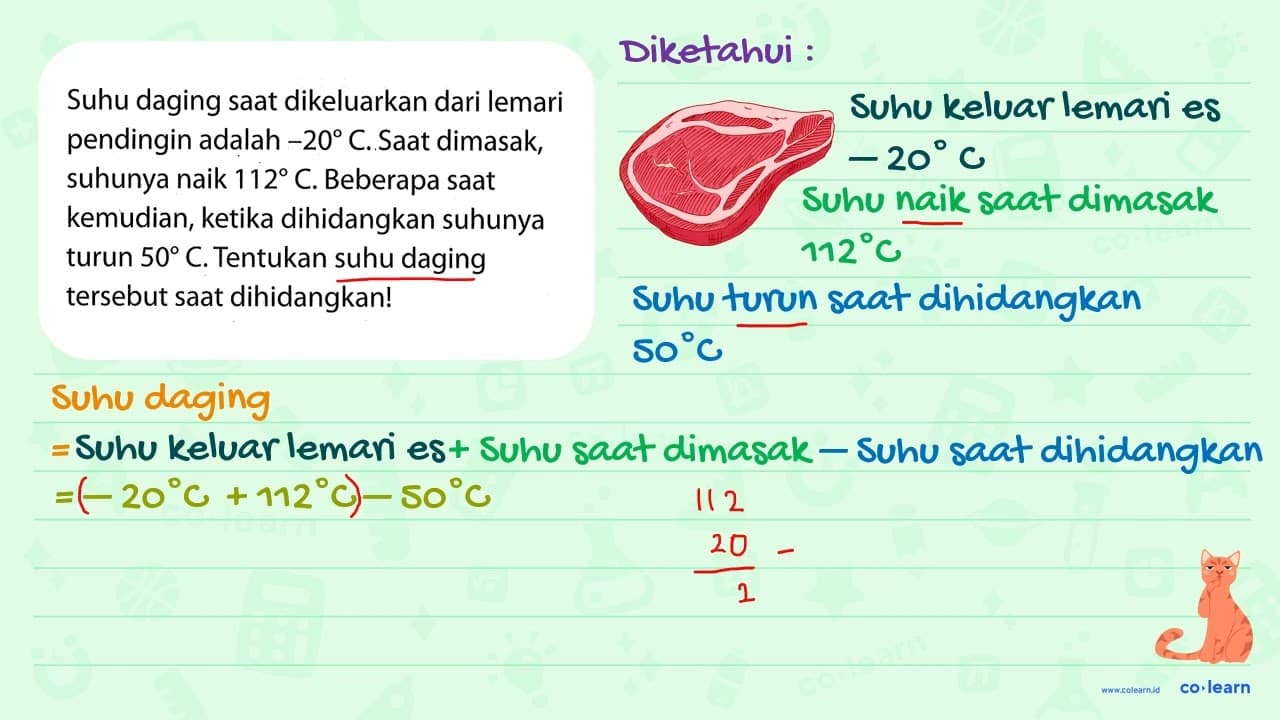 Suhu daging saat dikeluarkan dari lemari
pendingin adalah –20° C. Saat dimasak,
suhunya naik 112° C. Beberapa saat
kemudian, ketika dihidangkan suhunya
turun 50° C. Tentukan suhu daging
tersebut saat dihidangkan!
Diketahui :
Suhu keluar lemari es
— 20° C
Suhu naik saat dimasak
112°C
Suhu turun saat dihidangkan
50°C
Suhu daging
= Suhu keluar lemari es + Suhu saat dimasak — Suhu saat dihidangkan
= (— 20°C + 112°C) — 50°C
112
20 -
2
www.colearn.id co·learn